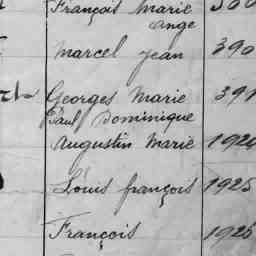 François Marie
Ange
Marcel Jean 390
Georges Marie 391
Paul Dominique
Augustin Marie 1924
Louis françois 1925
François 1926